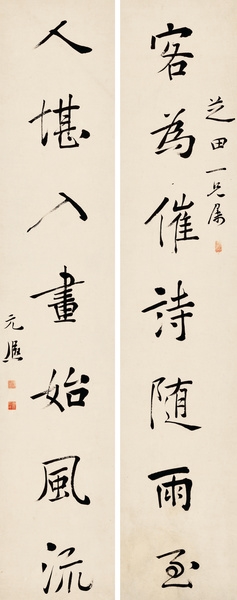 芝田一兄属
客為催詩随雨至
人堪入畫始風流
元